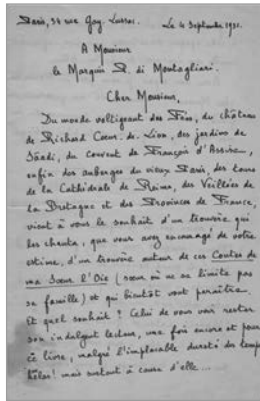 Paris, 34 rue Gay-Lussac. Le 4 Septembre 1931.
A Monsieur
le Marquis P. di Montagliari.
Cher Monsieur,
Du monde voltigeant des Fées, du château
de Richard Cœur-de-Lion, des jardins de
Saadi, du Couvent de François d'Assise,
enfin des auberges du vieux Paris, des tours
de la Cathédrale de Reims, des Veillées de
la Bretagne et des Provinces de France,
vient à vous le souhait d'un trouvère qui
les chanta, que vous avez encouragé de votre
estime, d'un trouvère auteur de ces Contes de
ma Sœur l'Oie (sœur où ne se limite pas
sa famille) et qui bientôt vont paraître.
Et quel souhait ? Celui de vous voir rester
son indulgent lecteur, une fois encore et pour
ce livre, malgré l'implacable dureté des temps
hélas ! mais surtout à cause d'elle...